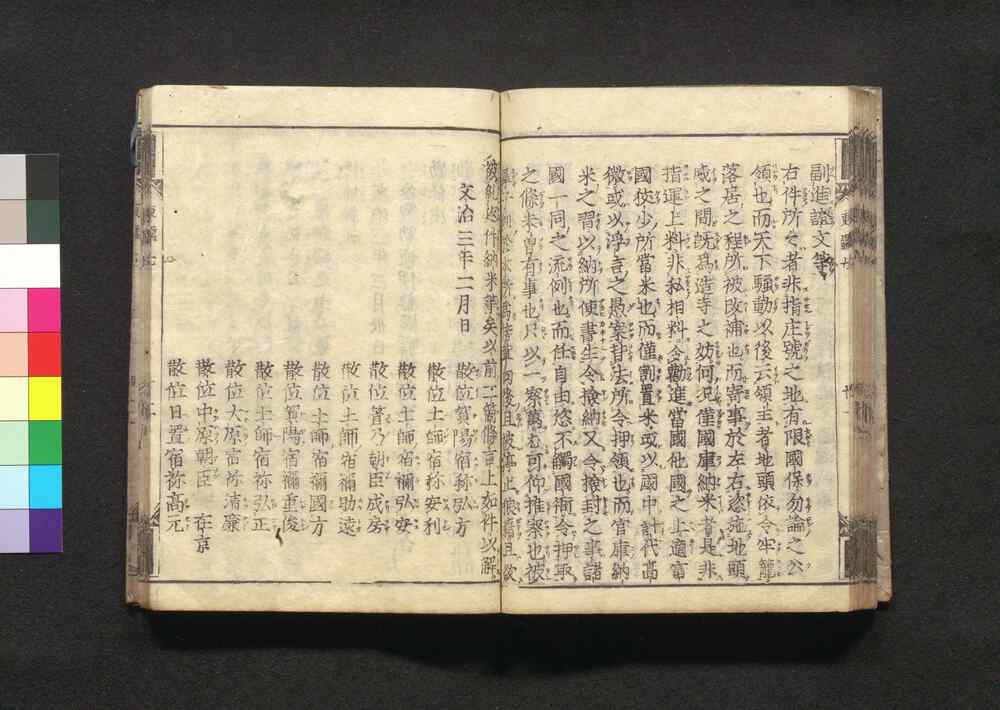 副進證文等
右件所々者非指庄號之地有限國保勿論之公
領也而天下騷動以後云領主者地頭依令牢籠
落居之程所被改補也而寄事於左右恣施地頭
威之間既為造寺之妨何况僅國庫納米者是非
指運上料非私相料令勸進當國他國之上適當
國使少所當米也而僅割置米或以國中計代
微或以浮言之愚案甘法所令押領也而官庫納
米之習以納所使書生令撿納又令撿封之事諸
國一同之流例也而任自由恣不觸國衙令押取
之條未曽有事也只以一察萬可仰推察也被
向後且被停止且欲
被糺返件納米等矣以前二箇條言上如件以解
文治三年二月日
散位賀陽宿祢弘方
散位土師宿祢安利
散位土師宿禰弘安
散位菅乃朝臣成房
散位土師宿禰助遠
散位土師宿禰國方
散位賀陽宿禰重俊
散位土師宿祢弘正
散位大原宿祢清廉
散位中原朝臣 在京
散位日置宿祢高元